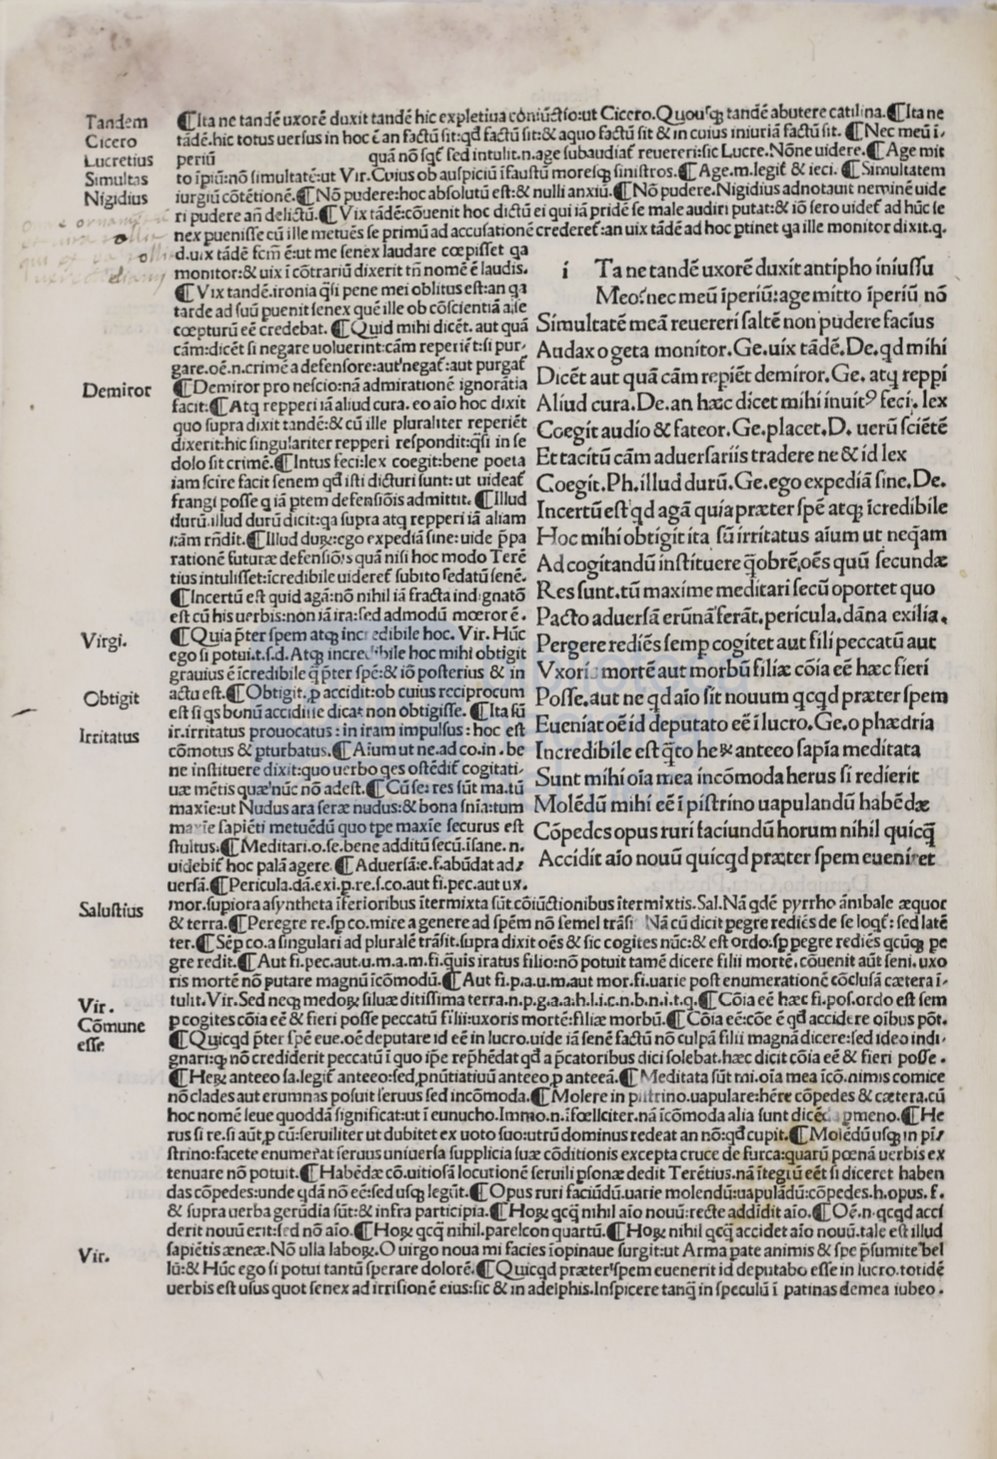 Tandem
Cicero
Lucretius
Simultas
Nigidius
Demiror
Virgi.
Obtigit
Irritatus
Salustius
Vir.
Cōmune
esse
Vir.
¶Ita ne tandē uxorē duxit tandē hic expletiua cōniūctio:ut Cicero.Quousq̨ tandē abutere catilina.¶Ita ne
tādē.hic totus uersus in hoc ē an factū sit:qđ factū sit:& aquo factū sit & in cuius iniuriā factū sit. ¶Nec meū i-
periū quā nō sed intulit.n.age subaudiat̄ reuereri:sic Lucre.Nōne uidere.¶Age mit
to īpiū:nō simultatē:ut Vir.Cuius ob auspiciū īfaustū moresq̨ sinistros.¶Age.m.legit̄ & ieci. ¶Simultatem
iurgiū cōtētionē.¶Nō pudere:hoc absolutū est:& nulli anxiū.¶Nō pudere.Nigidius adnotauit neminē uide
ri pudere añ delictū.¶Vix tādē:cōuenit hoc dictū ei qui iā pridē se male audiri putat:& iō sero uidet̄ ad hūc se
nex puenisse cū ille metuēs se primū ad accusationē crederet̄:an uix tādē ad hoc ptinet qa ille monitor dixit.q.
d.uix tādē fcm̄ ē:ut me senex laudare cœpisset qa
monitor:& uix ī cōtrariū dixerit tñ nomē ē laudis.
¶Vix tandē.ironia q̄si pene mei oblitus est:an qa
tarde ad suū puenit senex quē ille ob cōscientiā aise
cœpturū eē credebat. ¶Quid mihi dicēt. aut quā
cām:dicēt si negare uoluerint:cām reperiēt:si pur-
gare.oē.n.crimē a defensore:aut negat̄:aut purgat̄
¶Demiror pro nescio:nā admirationē ignorātia
facit:¶Atq repperi iā aliud cura. eo aio hoc dixit
quo supra dixit tandē:& cū ille pluraliter reperiēt
dixerit:hic singulariter repperi respondit:q̄si in se
dolo sit crimē.¶Intus feci:lex coegit:bene poeta
iam scire facit senem qđ isti dicturi sunt: ut uideat̄
frangi posse q iā ptem defensiōis admittit. ¶Illud
durū.illud durū dicit:qa supra atq repperi iā aliam
cām rñdit.¶Illud duꝝ:ego expediā sine: uide p̄pa
rationē futuræ defensiōis quā nisi hoc modo Terē
tius intulisset:īcredibile uideret̄ subito sedatū senē.
¶Incertū est quid agā:nō nihil iā fracta indignatō
est cū his uerbis:non iā ira:sed admodū mœror ē.
¶Quia p̄ter spem atq̨ incredibile hoc. Vir. Hūc
ego si potui.t.s.d. Atq̨ incredibile hoc mihi obtigit
grauius ē īcredibile q̄ p̄ter spē:& iō posterius & in
actu est.¶Obtigit.ꝓ accidit:ob cuius reciprocum
est si qs bonū accidisse dicat non obtigisse. ¶Ita sū
ir.irritatus prouocatus : in iram impulsus : hoc est
cōmotus & pturbatus.¶Aium ut ne.ad co.in . be
ne instituere dixit:quo uerbo qes ostēdit̄ cogitati-
uæ mētis quæ nūc nō adest.¶Cū se: res sūt ma.tū
maxīe:ut Nudus ara seræ nudus:& bona snīa:tum
maxīe sapiēti metuēdū quo tpe maxīe securus est
stultus.¶Meditari.o.se.bene additū secū.īsane. n.
uidebit̄ hoc palā agere. ¶Aduersā:e.f.abūdat ad:
uersā.¶Pericula.dā.exi.p.re.s.co.aut fi.pec.aut ux.
í Ta ne tandē uxorē duxit antipho iniussu
Meo:nec meū īperiū:age mitto īperiū nō
Simultatē meā reuereri saltē non pudere facius
Audax o geta monitor.Ge.uix tādē.De.qd mihi
Dicēt aut quā cām repiēt demiror.Ge. atq reppi
Aliud cura.De.an hæc dicet mihi inuitꝰ feci. lex
Coegit audio & fateor.Ge.placet.D. uerū sciētē
Et tacitū cām aduersariis tradere ne & id lex
Coegit.Ph.illud durū.Ge.ego expediā sine.De.
Incertū est qd agā quia præter spē atq̨ īcredibile
Hoc mihi obtigit ita sū irritatus aium ut neq̄am
Ad cogitandū instituere q̄obrē.oēs quū secundæ
Res sunt.tū maxime meditari secū oportet quo
Pacto aduersā erūnā ferāt.pericula.dāna exilia.
Pergere rediēs semp cogitet aut fili peccatū aut
Vxoris mortē aut morbū filiæ cōia eē hæc fieri
Posse.aut ne qd aio sit nouum qcqd præter spem
Eueniat oē id deputato eē ī lucro.Ge.o phædria
Incredibile est q̄to heꝝ anteeo sapia meditata
Sunt mihi oīa mea incōmoda herus si redierit
Molēdū mihi eē ī pistrino uapulandū habēdæ
Cōpedes opus ruri faciundū horum nihil quicq̄
Accidit aio nouū quicqd præter spem eueniret
mor.supiora asyntheta īferioribus ītermixta sūt cōiūctionibus ītermixtis.Sal.Nā qdē pyrrho ānibale æquor
& terra.¶Peregre re.sp co.mire a genere ad spēm nō semel trāsi Nā cū dicit pegre rediēs de se loqt̄: sed latē
ter.¶Sēp co.a singulari ad pluralē trāsit.supra dixit oēs & sic cogites nūc:& est ordo:sp pegre rediēs qcūq̨ pe
gre redit.¶Aut fi.pec.aut.u.m.a.m.fi.quis iratus filio:nō potuit tamē dicere filii mortē.cōuenit aūt seni. uxo
ris mortē nō putare magnū īcōmodū.¶Aut fi.p.a.u.m.aut mor.fi.uarie post enumerationē cōclusā cætera ī-
tulit.Vir.Sed neq̨ medoꝝ siluæ ditissima terra.n.p.g.a.a.h.l.i.c.n.b.n.i.t.q.¶Cōia eē hæc fi.pos.ordo est sem
p cogites cōia eē & fieri posse peccatū filii:uxoris mortē:filiæ morbū.¶Cōia eē:cōe ē qđ accidere oībus pōt.
¶Quicqd p̄ter spē eue.oē deputare id eē in lucro.uide iā senē factū nō culpā filii magnā dicere:sed ideo indi-
gnari:q̨ nō crediderit peccatū ī quo ip̄e rep̄hēdat qđ a p̄catoribus dici solebat.hæc dicit cōia eē & fieri posse .
¶Heꝝ anteeo sa.legit̄ anteeo:sed,pnūtiatiuū anteeo,p anteeā.¶Meditata sūt mi.oīa mea īcō.nimis comice
nō clades aut erumnas posuit seruus sed incōmoda.¶Molere in pistrino.uapulare:hēre cōpedes & cætera.cū
hoc nomē leue quoddā significat:ut ī eunucho.Immo.n.īfœliciter.nā īcōmoda alia sunt gmeno.¶He
rus si re.si aūt,p cū:seruiliter ut dubitet ex uoto suo:utrū dominus redeat an nō:qđ cupit.¶Molēdū usq̨ in pi-
strino:facete enumerat seruus uniuersa supplicia suæ cōditionis excepta cruce de furca:quarū pœnā uerbis ex
tenuare nō potuit.¶Habēdæ cō.uitiosā locutionē seruili psonæ dedit Terētius.nā ītegrū eēt si diceret haben
das cōpedes:unde qdā nō eē:sed usq̨ legūt.¶Opus ruri faciūdū.uarie molendū:uapulādū:cōpedes.h.opus. f.
& supra uerba gerūdia sūt:& infra participia.¶Hoꝝ qcq̄ nihil aio nouū:recte addidit aio.¶Oē.n.qcqd acci
derit nouū erit:sed nō aio.¶Hoꝝ qcq̄ nihil.parelcon quartū.¶Hoꝝ nihil qcq̄ accidet aio nouū.tale est illud
sapiētis æneæ.Nō ulla laboꝝ.O uirgo noua mi facies īopinaue surgit:ut Arma pate animis & spe p̄sumite bel
lū:& Hūc ego si potui tantū sperare dolorē.¶Quicqd præter spem euenerit id deputabo esse in lucro.totidē
uerbis est usus quot senex ad irrisionē eius:sic & in adelphis.Inspicere tanq̄ in speculū ī patinas demea iubeo .